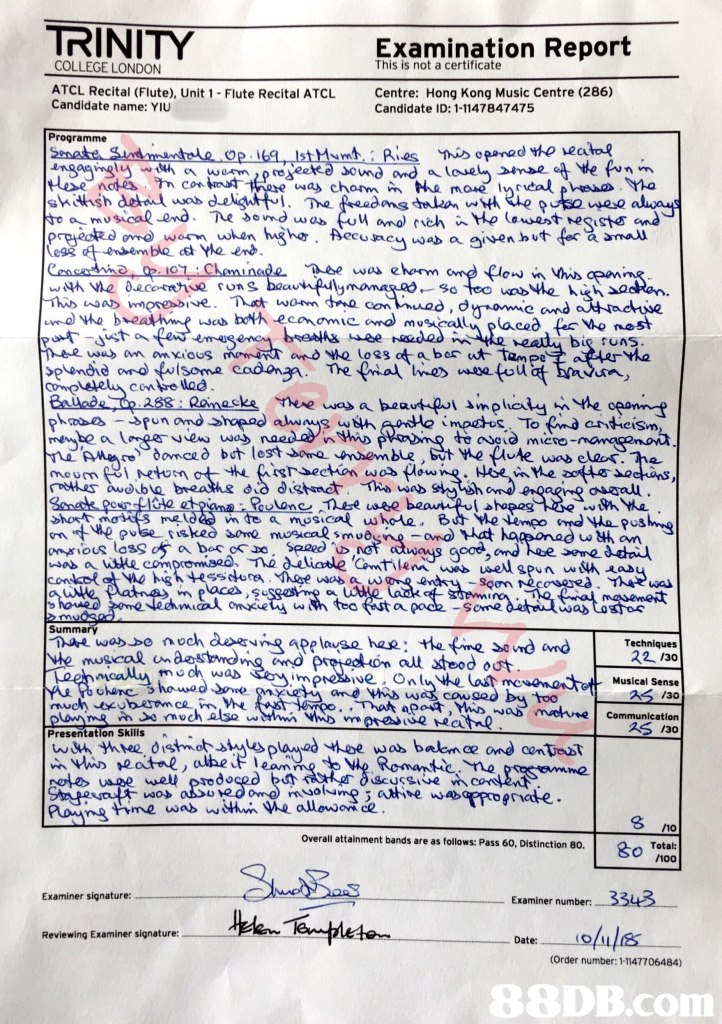 TRINITY
COLLEGE LONDON
Examination Report
This is not a certificate
ATCL Recital (Flute), Unit 1 - Flute Recital ATCL
Candidate name: YIU
Centre: Hong Kong Music Centre (286)
Candidate ID: 1-1147847475
Programme
Sonate Sentimentale, Op. 169, 1st Mvmt. : Ries This opened the recital
engagingly with a warm, projected sound and a lovely sense of the fun in
these notes. In contrast there was charm in the more lyrical phrases. The
skittish detail was delightful. The freedoms taken with the pulse were always
to a musical end. The sound was full and rich in the lowest register and
projected and warm when higher. Accuracy was a given but for a small
loss of ensemble at the end.
Concertino, Op. 107 : Chaminade There was charm and flow in this opening
with the decorative runs beautifully managed - so too was the high section.
This was impressive. That warm tone continued, dynamic and attractive
and the breathing was both economic and musically placed for the most
part - just a few emergency breaths were needed in the really big runs.
There was an anxious moment and the loss of a bar at Tempo I after the
splendid and fulsome cadenza. The final lines were full of bravura,
completely controlled.
Ballade, Op. 288 : Reinecke There was a beautiful simplicity in the opening
phrases - spun and shaped always with gentle impetus. To find criticism,
maybe a longer view was needed in this phrasing to avoid micro-management.
The 'Allegro' danced but lost some ensemble, but the flute was clear. The
mournful return of the first section was flowing. Here in the softer sections,
rather audible breaths did distract. This was stylish and engaging overall.
Sonate pour flûte et piano : Poulenc There were beautiful shapes here with the
short motifs melded in to a musical whole. But the tempo and the pushing
on of the pulse risked some musical smudging - and that happened with an
anxious loss of a bar or so. Speed is not always good, and here some detail
was a little compromised. The delicate 'Cantilena' was well spun with easy
control of the high tessitura. There was a wrong entry - soon recovered. There was
a little flatness in places, suggesting a little lack of stamina. The final movement
showed some technical anxiety with too fast a pace - some detail was lost or
smudged.
Summary
There was so much deserving applause here: the fine sound and
the musical understanding and projection all stood out.
Technically much was very impressive. Only the last movement of
the Poulenc showed some anxiety and this was caused by too
much exuberance in the fast tempo. That apart, this was mature
playing in so much else within this impressive recital.
Techniques
22 /30
Musical Sense
25 /30
Communication
25 /30
Presentation Skills
With three distinct styles played there was balance and contrast
in this recital, albeit leaning to the Romantic. The programme
notes were well produced but rather discursive in content.
Stagecraft was assured and involving; attire was appropriate.
Playing time was within the allowance.
8 /10
Overall attainment bands are as follows: Pass 60, Distinction 80.
80 Total:
/100
Examiner signature:
Examiner number: 3343
Reviewing Examiner signature: Helen Templeton
Date: 10/11/
(Order number: 1-1147706484)
88DB.com